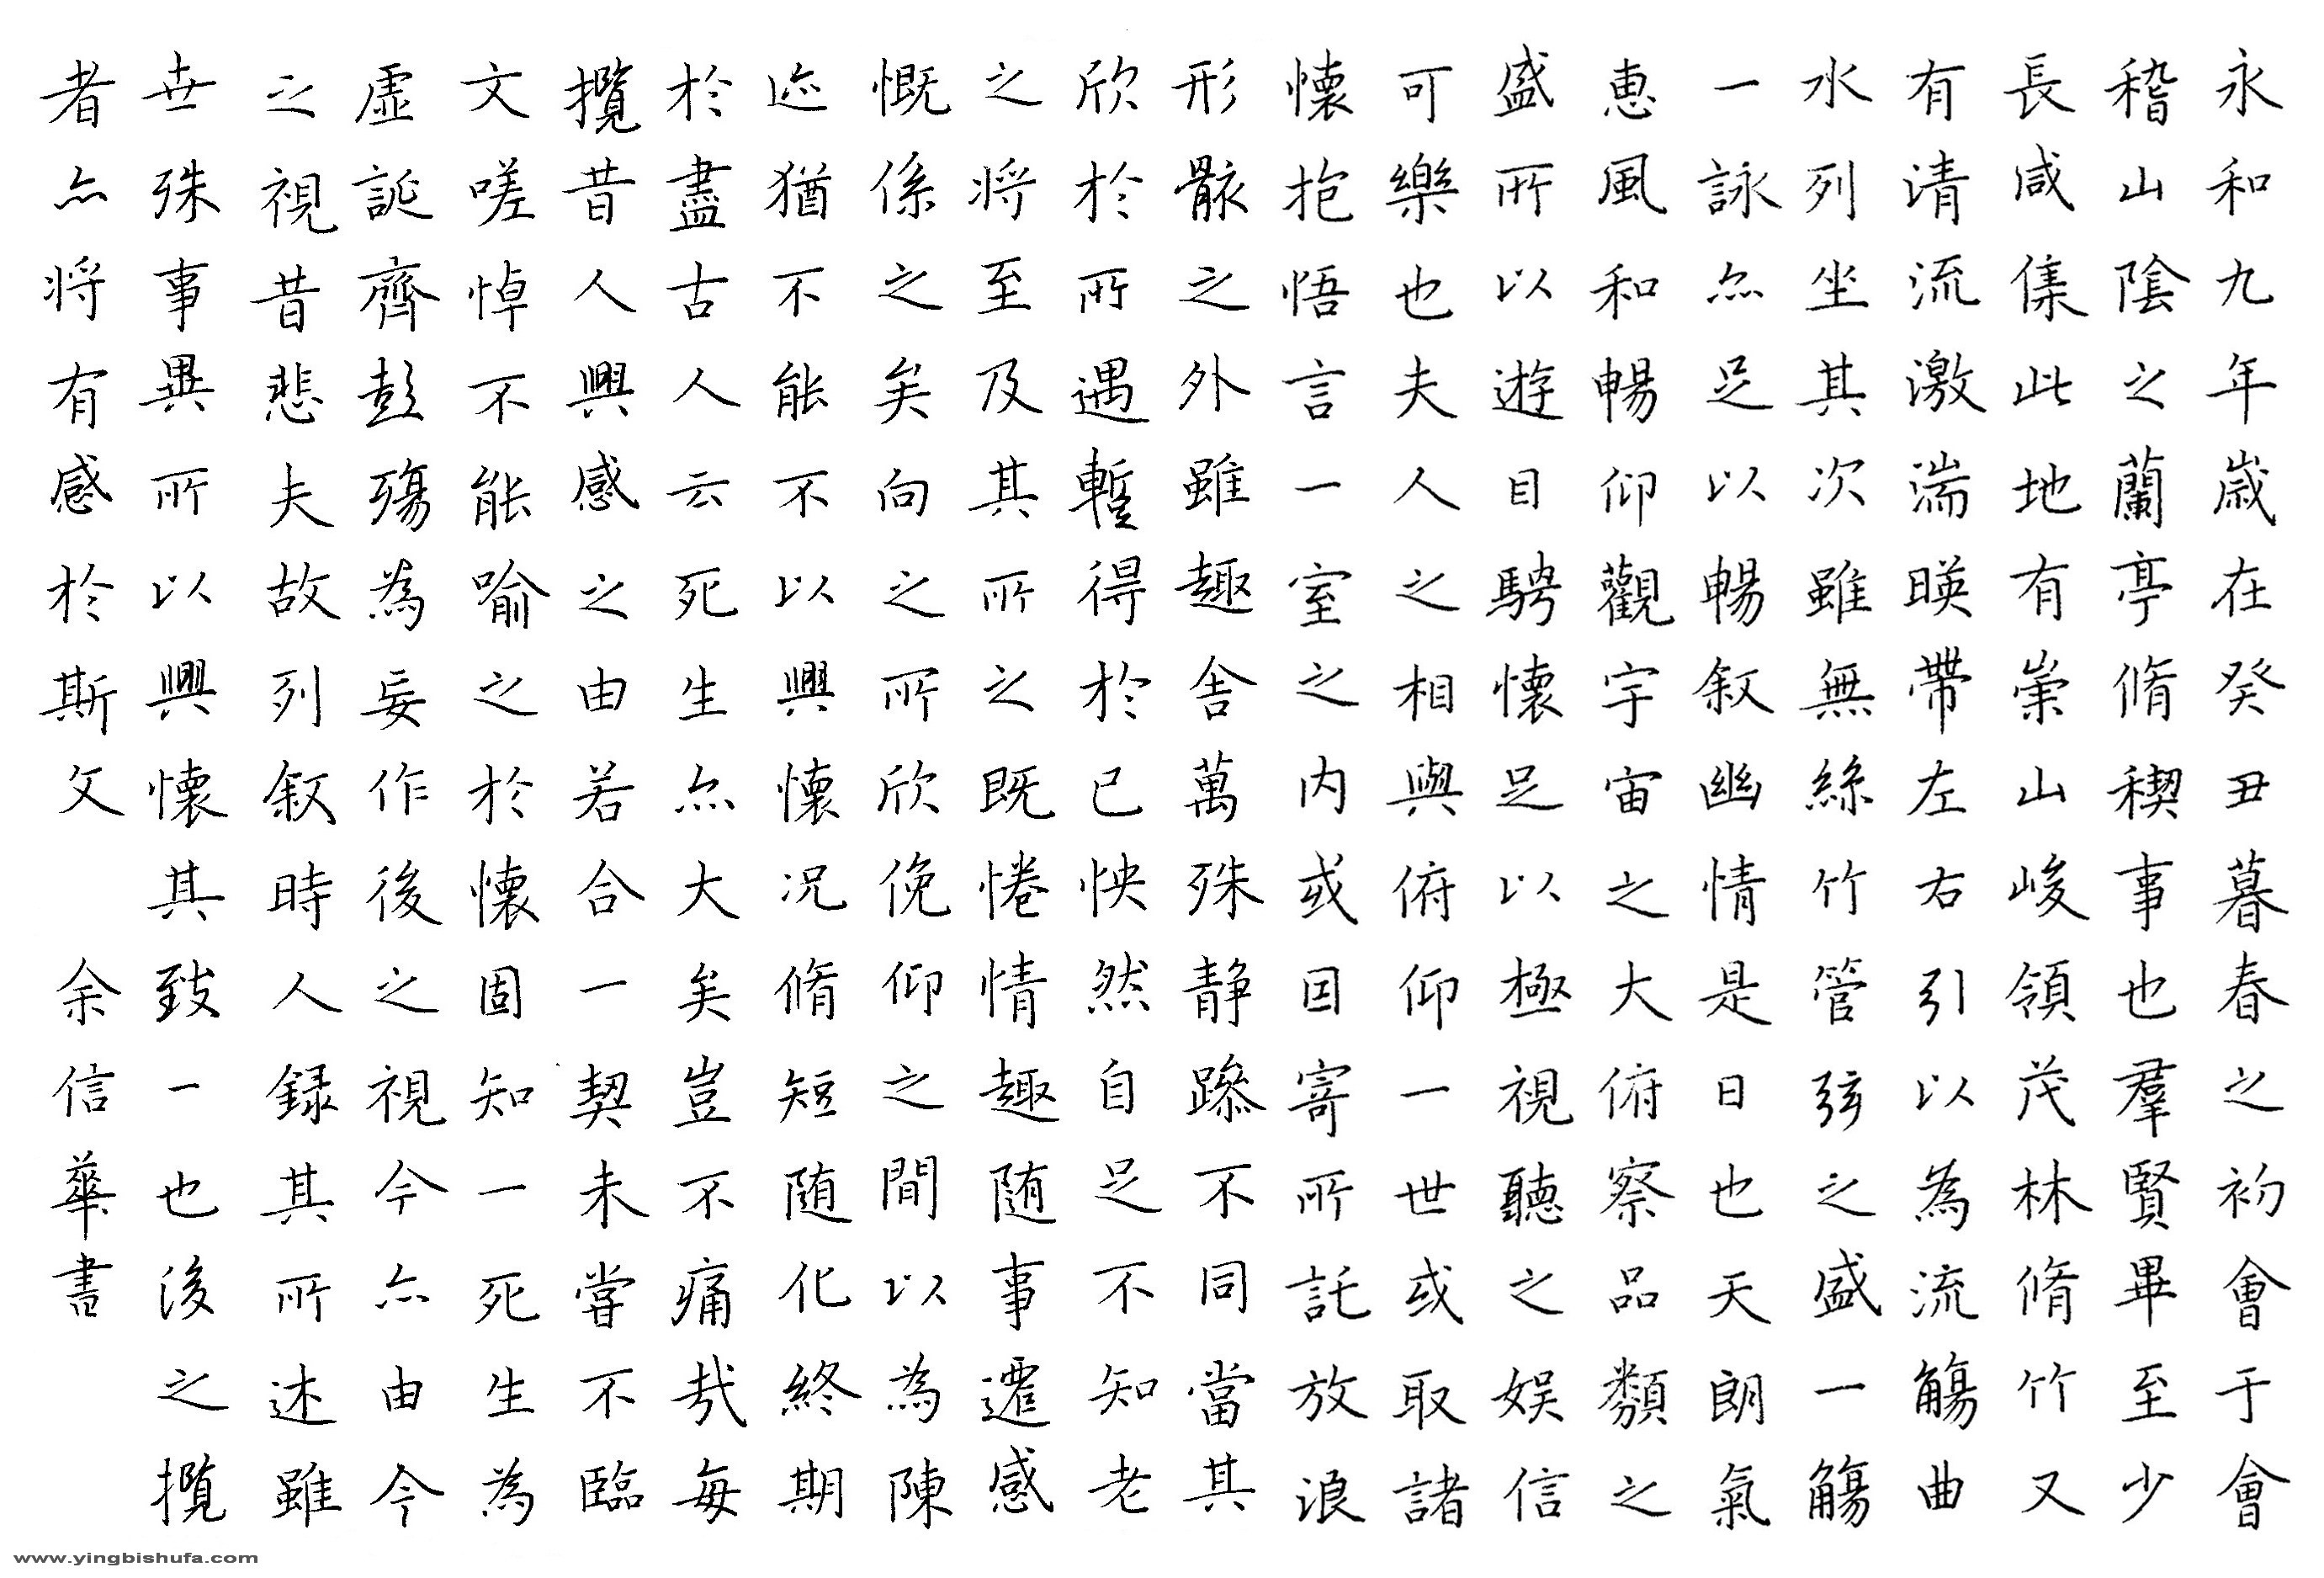 永和九年歲在癸丑暮春之初會于會
稽山陰之蘭亭脩稧事也羣賢畢至少
長咸集此地有崇山峻領茂林脩竹又
有清流激湍暎帶左右引以為流觴曲
水列坐其次雖無絲竹管弦之盛一觴
一詠亦足以暢叙幽情是日也天朗氣
恵風和暢仰觀宇宙之大俯察品類之
盛所以遊目騁懷足以極視聽之娱信
可樂也夫人之相與俯仰一世或取諸
懷抱悟言一室之内或因寄所託放浪
形骸之外雖趣舍萬殊静躁不同當其
欣於所遇暫得於己怏然自足不知老
之将至及其所之既惓情随事遷感
慨係之矣向之所欣俛仰之間以為陳
迹猶不能不以興懷况脩短随化終期
於盡古人云死生亦大矣豈不痛哉每
攬昔人興感之由若合一契未甞不臨
文嗟悼不能喻之於懷固知一死生為
虛誕齊彭殤為妄作後之視今亦由今
之視昔悲夫故列叙時人録其所述雖
世殊事異所以興懷其致一也後之攬
者亦将有感於斯文 余信華書
www.yingbishufa.com